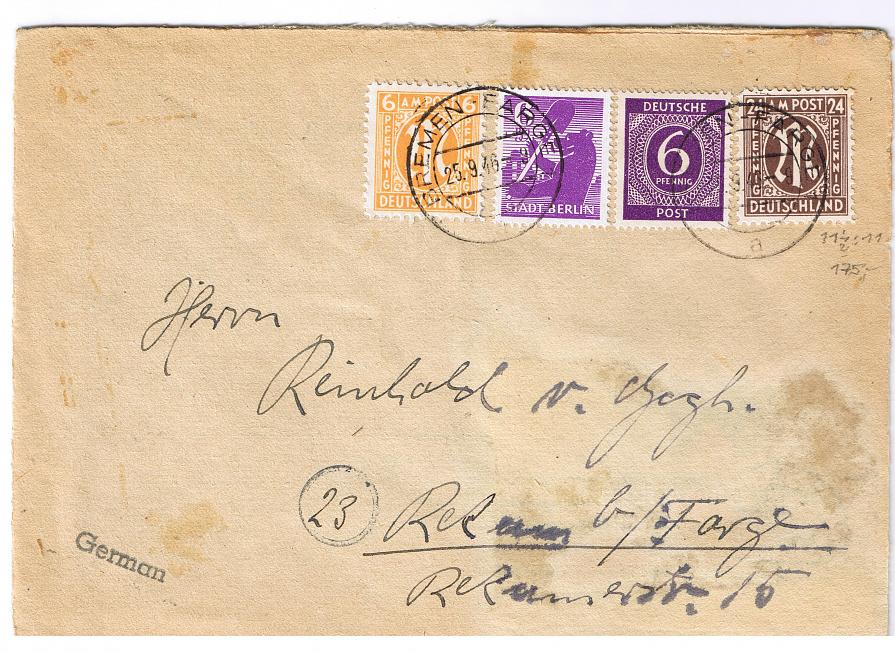 6 AM POST 6
PFENNIG PFENNIG
DEUTSCHLAND
6
STADT BERLIN
DEUTSCHE
6
PFENNIG
POST
24 AM POST 24
PFENNIG PFENNIG
DEUTSCHLAND
BREMEN-FARGE
25.9.46
a
11½:11
175,-
Herrn
Reinhold v. Gogh.
23 Rekum b/Farge
Rekumerstr. 15
German